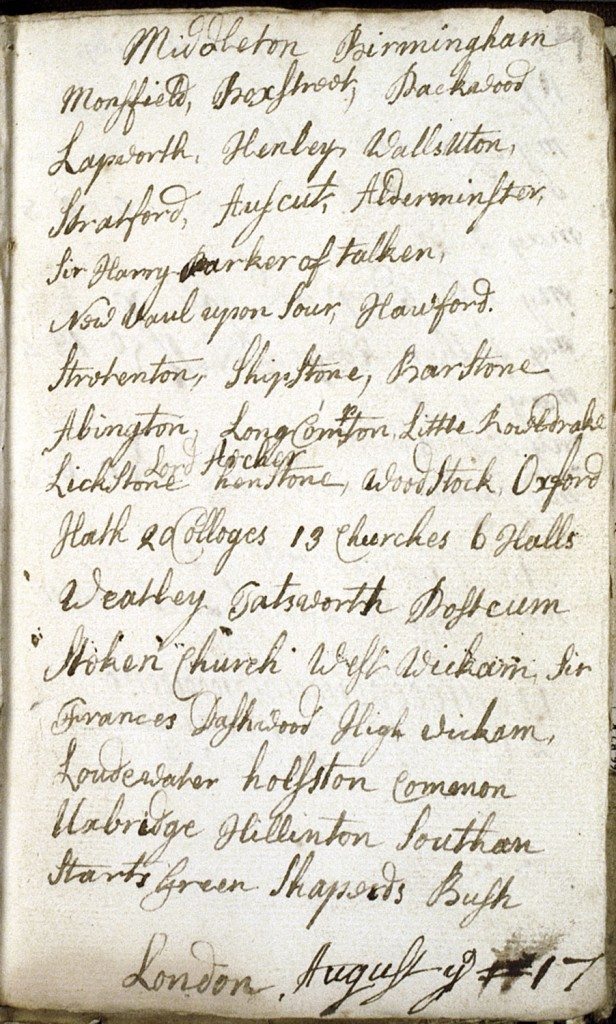 Middleton Birmingham
Monsfield, Boxstreet, Backwood
Lapworth, Henley, Wallstton,
Stratford, Auscut, Alderminster,
Sir Harry Parker of talken,
New Vaul upon Sour, Hawford.
Strotenton, Shipstone, Barstone
Abington, Long Comton, Little Rowldrake
Lord Archer
Lickstone henstone, Woodstock, Oxford
Hath 20 Colloges 13 Churches 6 Halls
Weatley Tatsworth Postcum
Stoken Church West Wickam, Sir
Frances Dashwood High wickam,
Loudewater holsston Common
Uxbridge Hillinton Southan
Starts Green Shaperds Bush
London, August ye 17